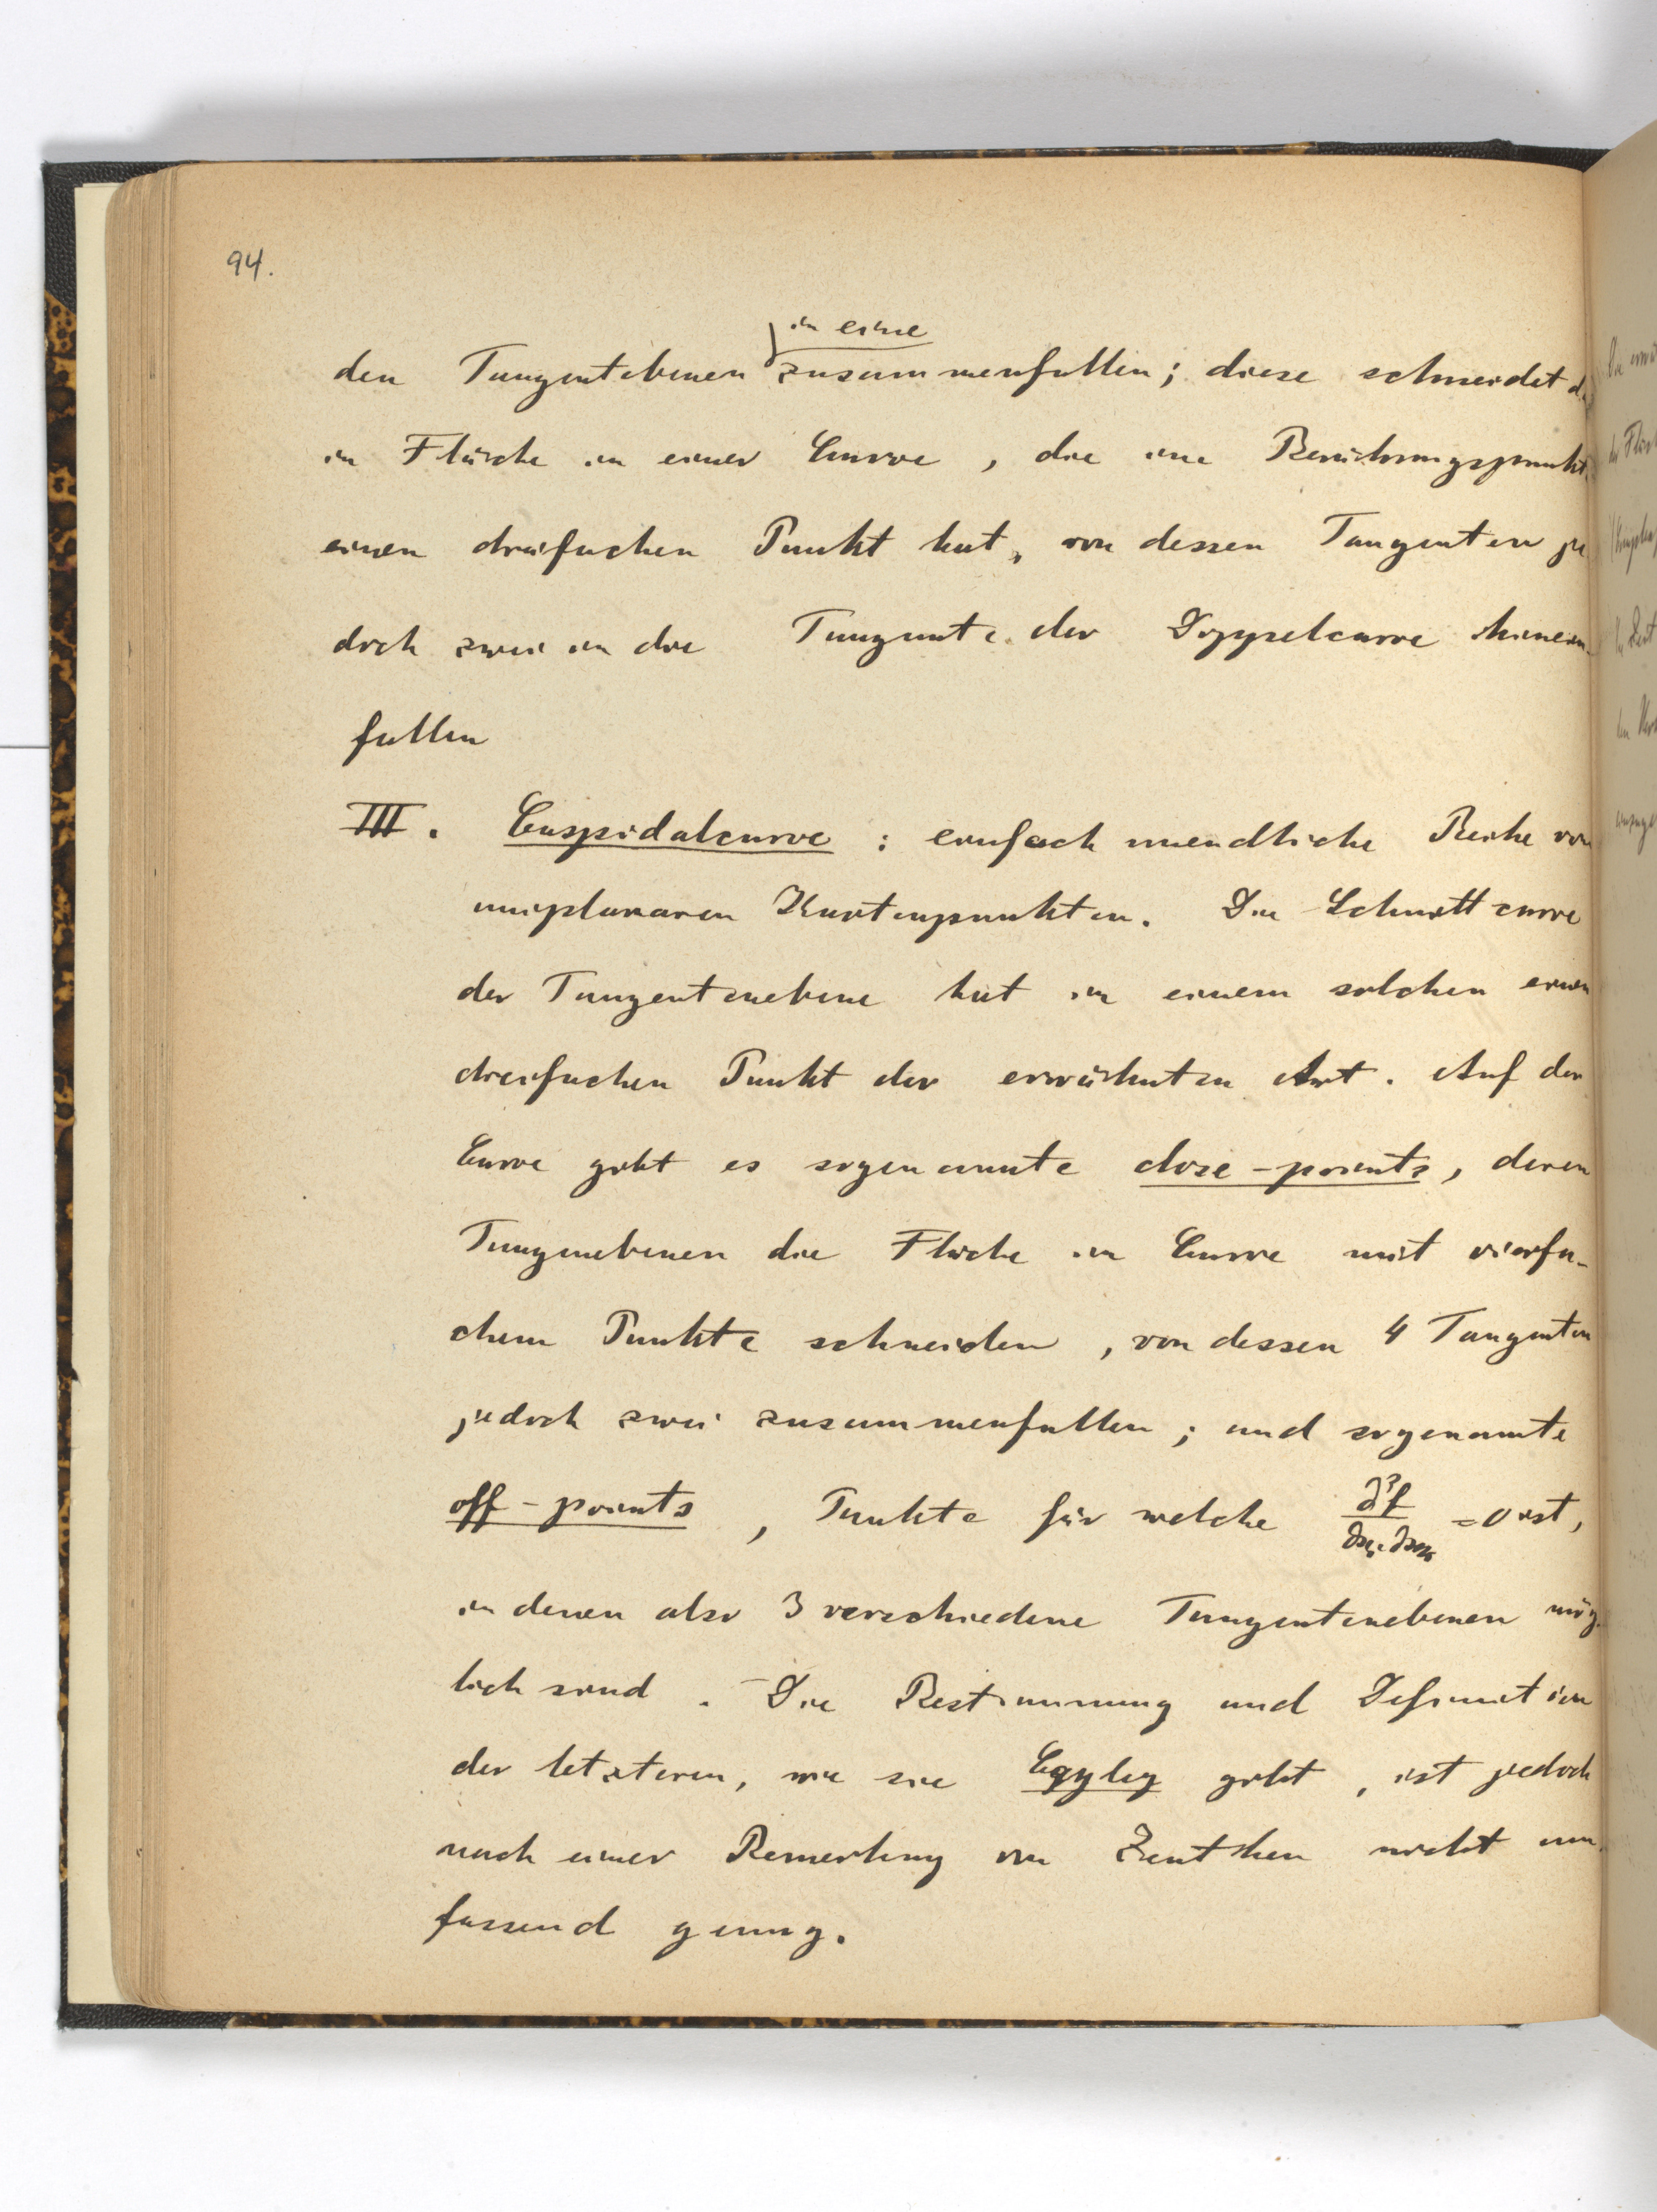 94.
in eine
den Tangentebenen zusammenfallen; diese schneidet
in Fläche in einer Curve, die im Berührungspunkt
einen dreifachen Punkt hat, von dessen Tangenten je
doch zwei in die Tangente der Doppelcurve hinein-
fallen
III. Cuspidalcurve: einfach unendliche Reihe von
uniplanaren Knotenpunkten. Die Schnittcurve
der Tangentenebene hat in einem solchen einen
dreifachen Punkt der erwähnten Art. Auf der
Curve giebt es sogenannte close-points, deren
Tangenebenen die Fläche in Curve mit vierfa-
chem Punkte schneiden, von dessen 4 Tangenten
jedoch zwei zusammenfallen; und sogenannte
off-points, Punkte für welche ∂²f/∂xᵢ∂xₖ = 0 ist,
in denen also 3 verschiedene Tangentenebenen mög-
lich sind. Die Bestimmung und Definition
der letzteren, wie sie Cayley giebt, ist jedoch
nach einer Bemerkung von Zeuthen nicht um-
fassend genug.